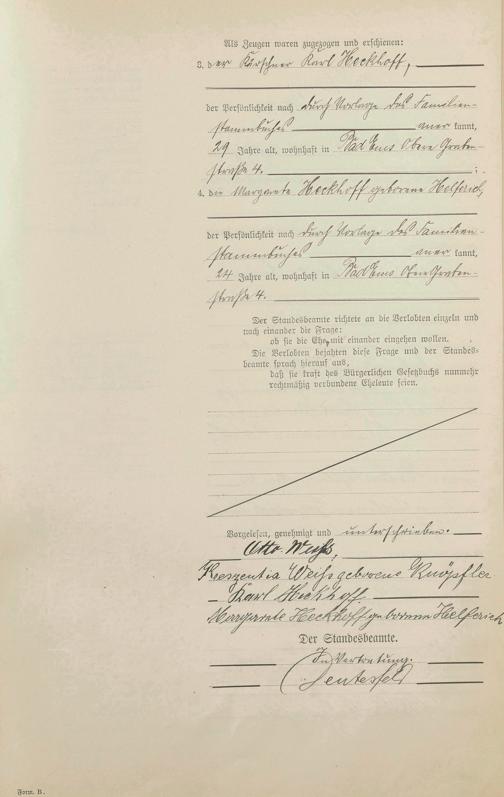 Als Zeugen waren zugezogen und erschienen:
3. der Kürschner Karl Heckhoff,
der Persönlichkeit nach durch Vorlage des Familien-
stammbuches aner kannt,
29 Jahre alt, wohnhaft in Bad Ems Obere Graben-
straße 4. ;
4. die Margarete Heckhoff geborene Helferich,
der Persönlichkeit nach durch Vorlage des Familien-
stammbuches aner kannt,
24 Jahre alt, wohnhaft in Bad Ems Obere Graben-
straße 4.
Der Standesbeamte richtete an die Verlobten einzeln und
nach einander die Frage:
ob sie die Ehe mit einander eingehen wollen.
Die Verlobten bejahten diese Frage und der Standes-
beamte sprach hierauf aus,
daß sie kraft des Bürgerlichen Gesetzbuchs nunmehr
rechtmäßig verbundene Eheleute seien.
Vorgelesen, genehmigt und unterschrieben.
Otto Weiß,
Kreszentia Weiß geborene Knöpfler
Karl Heckhoff
Margarete Heckhoff geborene Helferich
Der Standesbeamte.
In Vertretung.
Form. B.